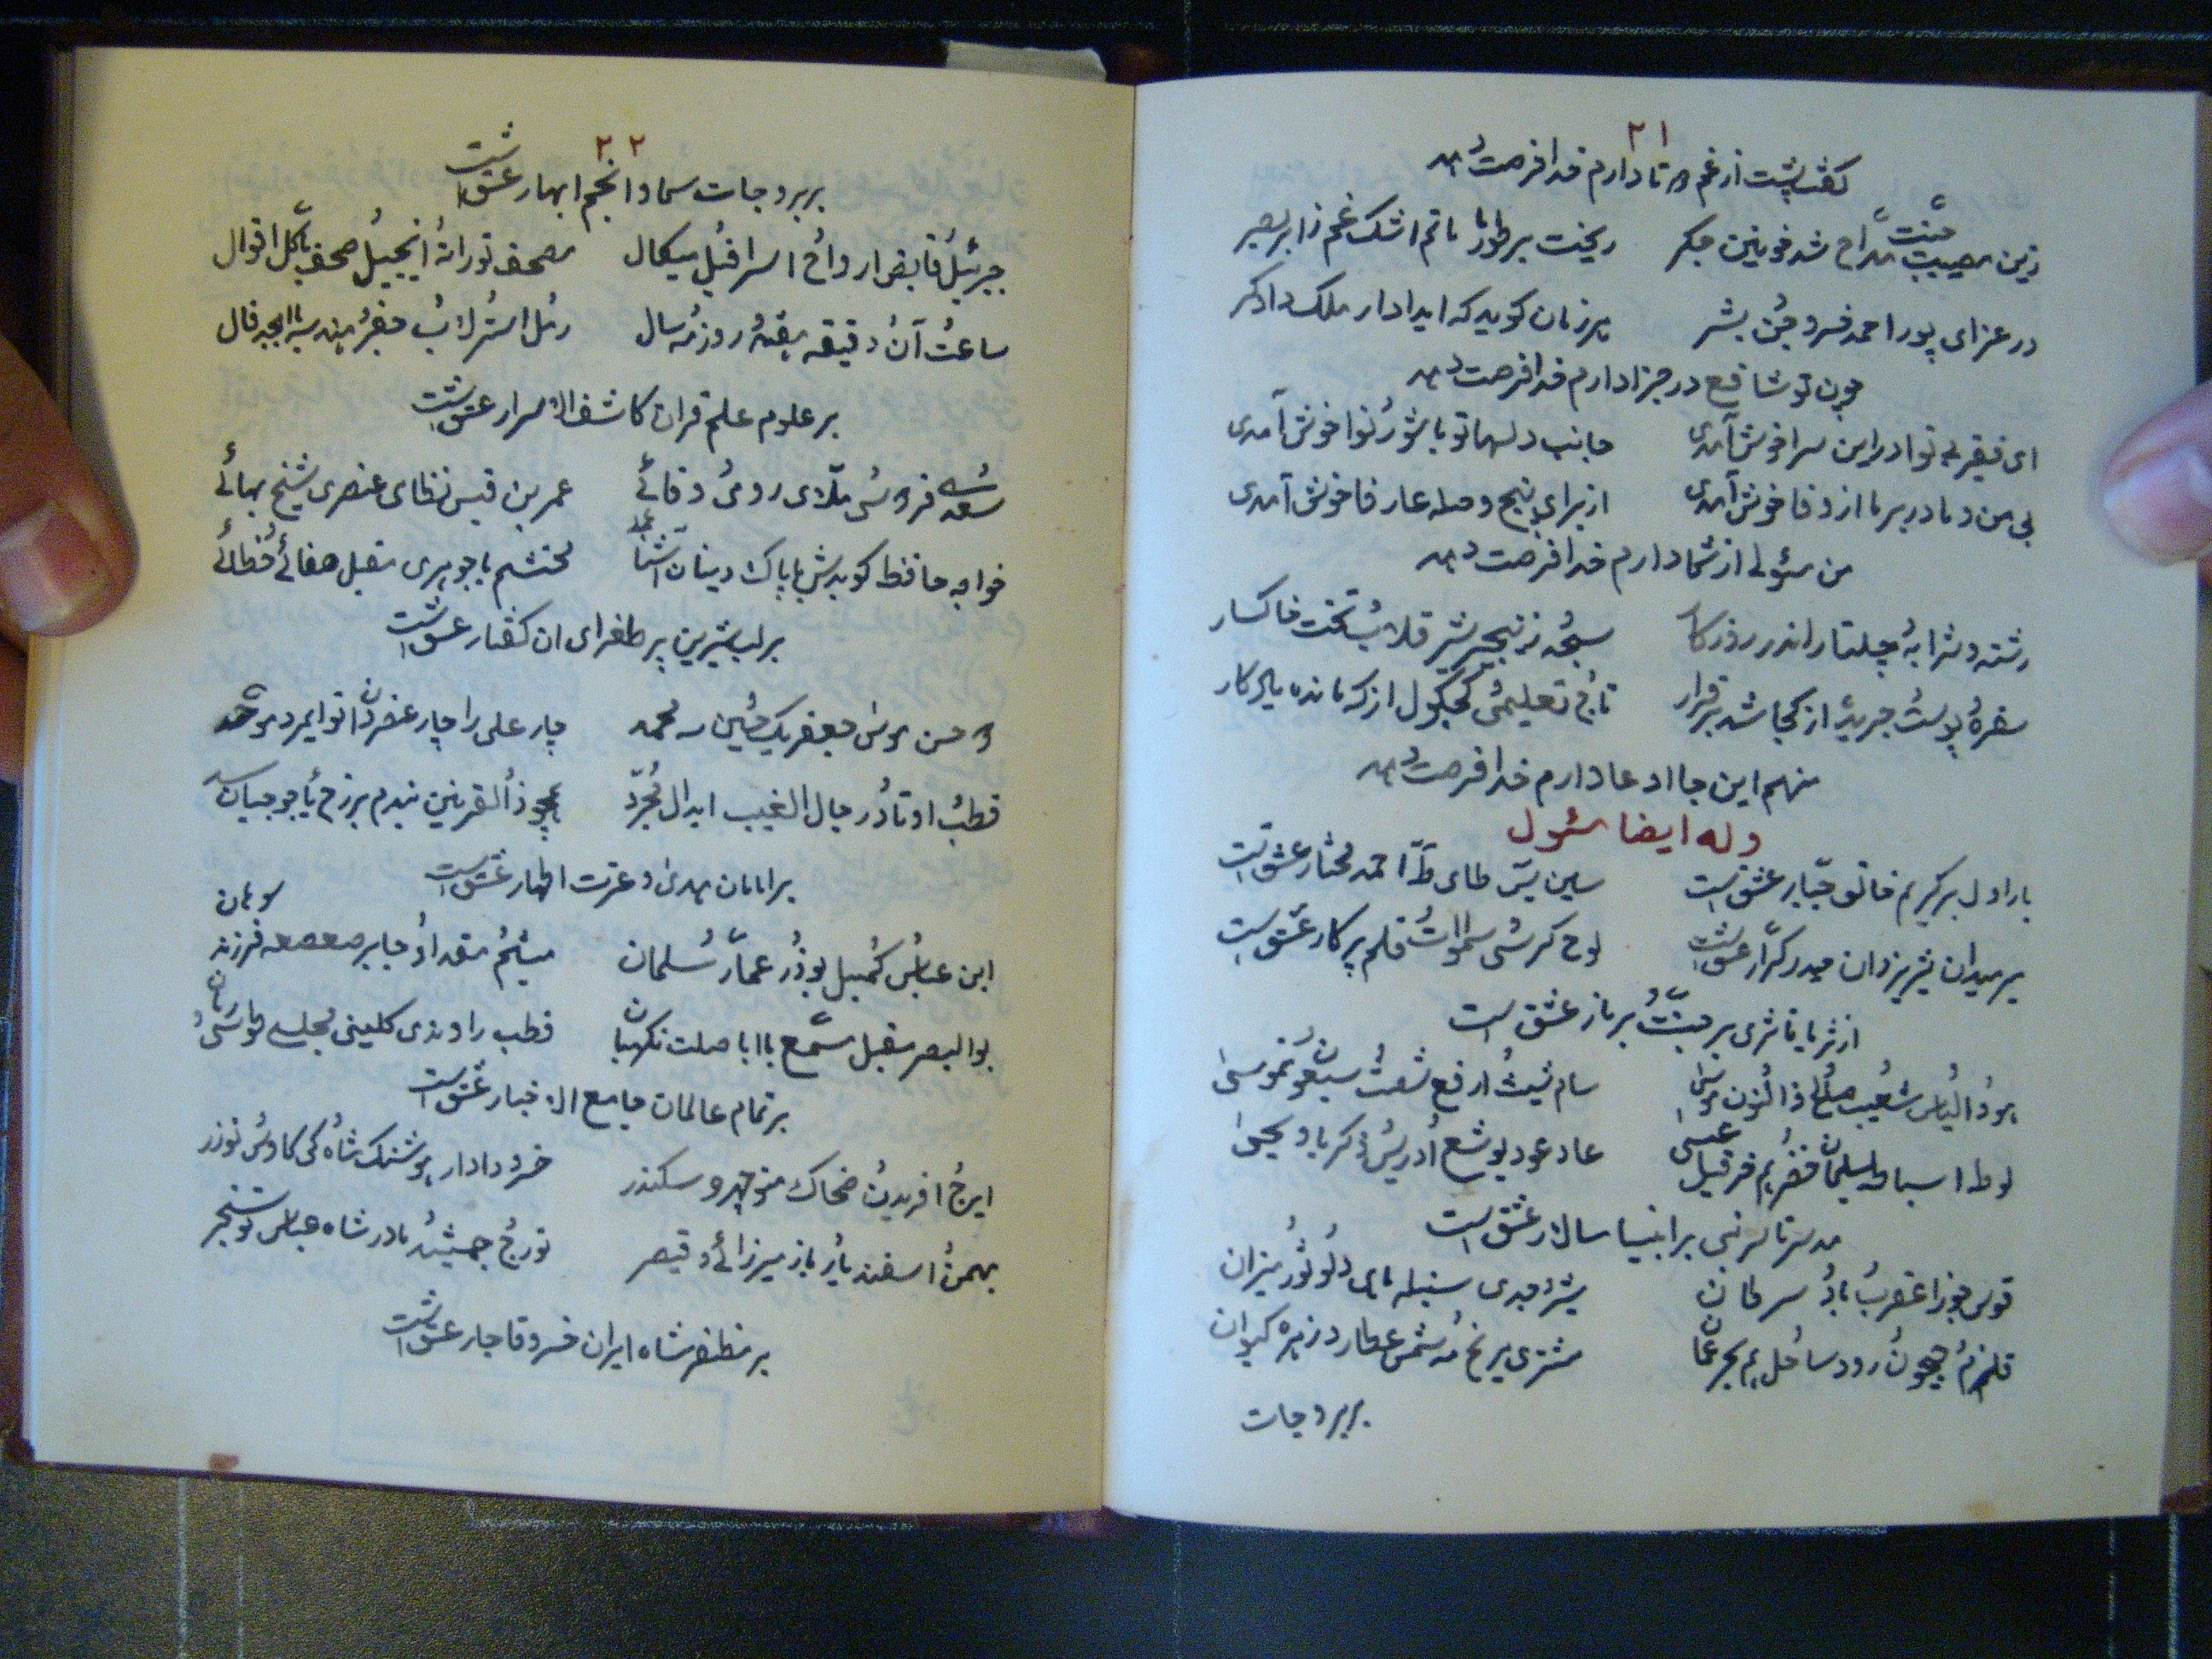 ۲۱
گفت پشت از غم دو تا دارم خدا فرصت دهد
زین مصیبت مداح شد خونین جگر ریخت بر طورنا ماتم اشک غم ز ابر بصر
در عزای پور احمد خسرو جن بشر هر زمان گوید که ایدادار ملک دادگر
چون تو شافع در جزا دارم خدا فرصت دهد
ای فقیر بی نوا در این سرا خوش آمدی جانب دلها تو با شور نوا خوش آمدی
بی من و ما در بر ما از وفا خوش آمدی از برای نهج وصله عارفا خوش آمدی
من سئوالی از شما دارم خدا فرصت دهد
رشته و شرابه چلتار اندر روزکار سبحه زنجیر نشر قلاب تخت خاکسار
سفره پوست جریده از کجا شد برقرار تاج تعلیمی کجکول از که مانده یادکار
منهم این جا ادعا دارم خدا فرصت دهد
وله ایضا سئول
بار اول بر کریم خالق جبار عشق است سین یس طای طه احمد مختار عشق است
بر میدان شیر یزدان حیدر کرار عشق است لوح کرسی سموات قلم پرکار عشق است
از ثریا تا ثری بر جنت برنار عشق است
هود الیاس شعیب صلح ذالنون موسی سام شیث ارفع شمعون
لوط اسباط سلیمان خضر هم خرقیل عیسی عاد عود یوشع ادریس ذکریا و یحیی
مدستر تا سر نبی بر انبیا سالار عشق است
قوس جوزا عقرب باد سرطان شیر و جدی سنبله ماهی دلو ثور میزان
قلزم جیحون رود ساحل یم بحر عمان مشتری مریخ مه شمس عطارد زهره کیوان
بر بروجات
۲۲
بر بروجات سما و انجم ابهار عشق است
جبرئیل قابض ارواح اسرافیل میکال مصحف تورات انجیل صحف با کل اقوال
ساعت آن دقیقه هفته روز مه سال رمل استرلاب جفر هندسه با ابجد فال
بر علوم علم قران کاشف الاسرار عشق است
سعدی فردوسی ملای رومی وفائی عمر بن قیس نظامی عنصری شیخ بهائی
خواجه حافظ کوبدش با پاک دینان آشنا محتشم با جوهری مقبل صفائی خطائی
بر لب شیرین پر طغرای ان گفتار عشق است
دو حسن موسی جعفر یک حسین سه محمد چار علی را چار عنصر دان تو ایمرد موحد
قطب اوتاد رجال الغیب ابدال مجرد همچو ذالقرنین نبدم برزخ یاجوجیان سد
بر امامان هدی و عزت اطهار عشق است
ابن عباس کمیل بوذر عمار سلمان میثم مقداد جابر صعصعه فرزند صوحان
بوالبصر مقبل سمع با اباصلت نکهبان قطب راوندی کلینی مجلسی طوسی
بر تمام عالمان جامع الاخبار عشق است
ایرج افریدون ضحاک منوچهر و سکندر خرد دادار هوشنک شاه کی کاوس نوذر
بهمن اسفندیار باز میرزائی و قیصر تورج جمشید نادر شاه عباس تو سنجر
بر مظفر شاه ایران خسرو قاجار عشق است